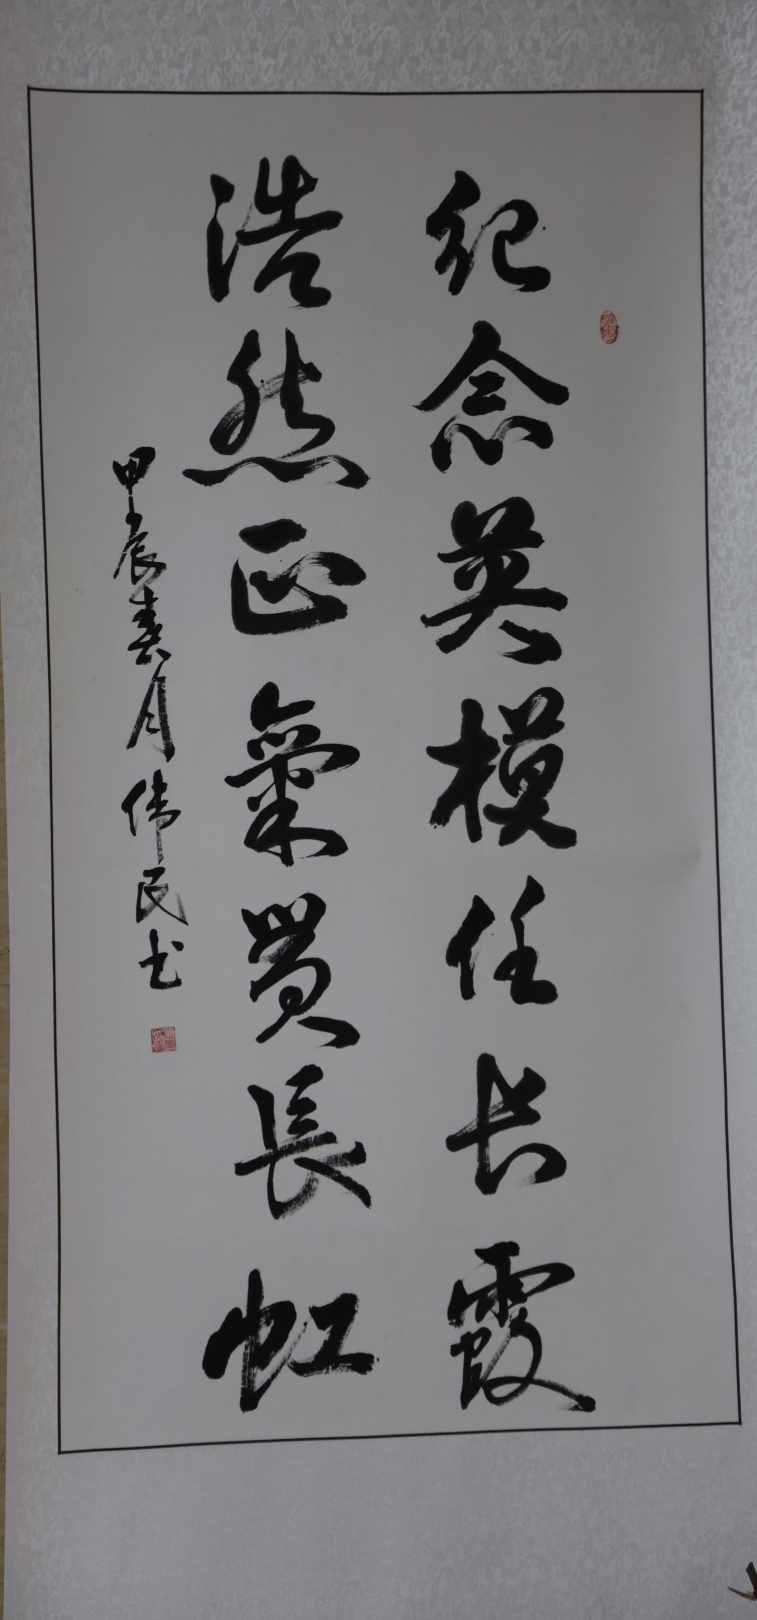 纪念英模任长霞
浩然正氣贯長虹
甲辰春月伟民书